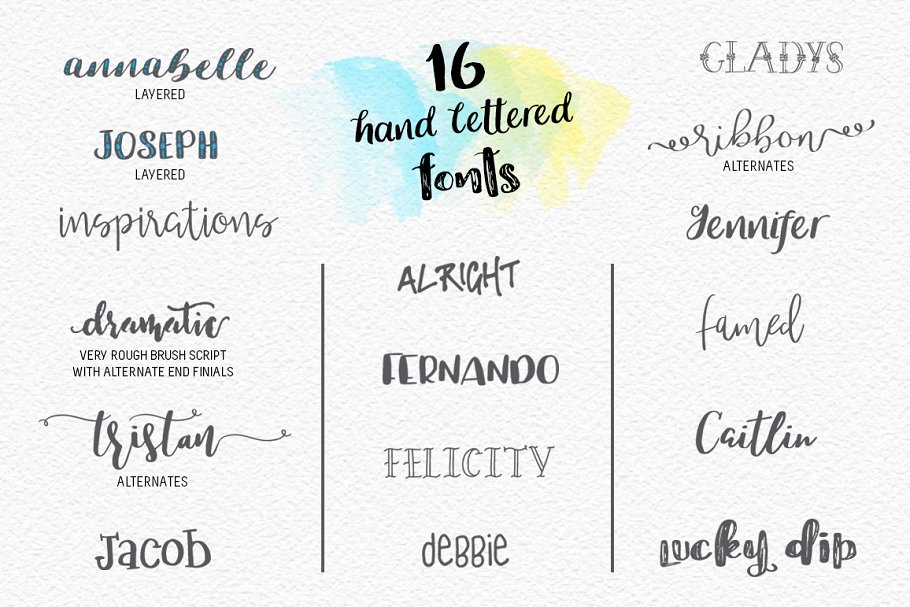 16
hand lettered
fonts
annabelle
LAYERED
JOSEPH
LAYERED
inspirations
dramatic
VERY ROUGH BRUSH SCRIPT
WITH ALTERNATE END FINIALS
tristan
ALTERNATES
Jacob
ALRIGHT
FERNANDO
FELICITY
deBBie
GLADYS
ribbon
ALTERNATES
Jennifer
famed
Caitlin
lucky dip